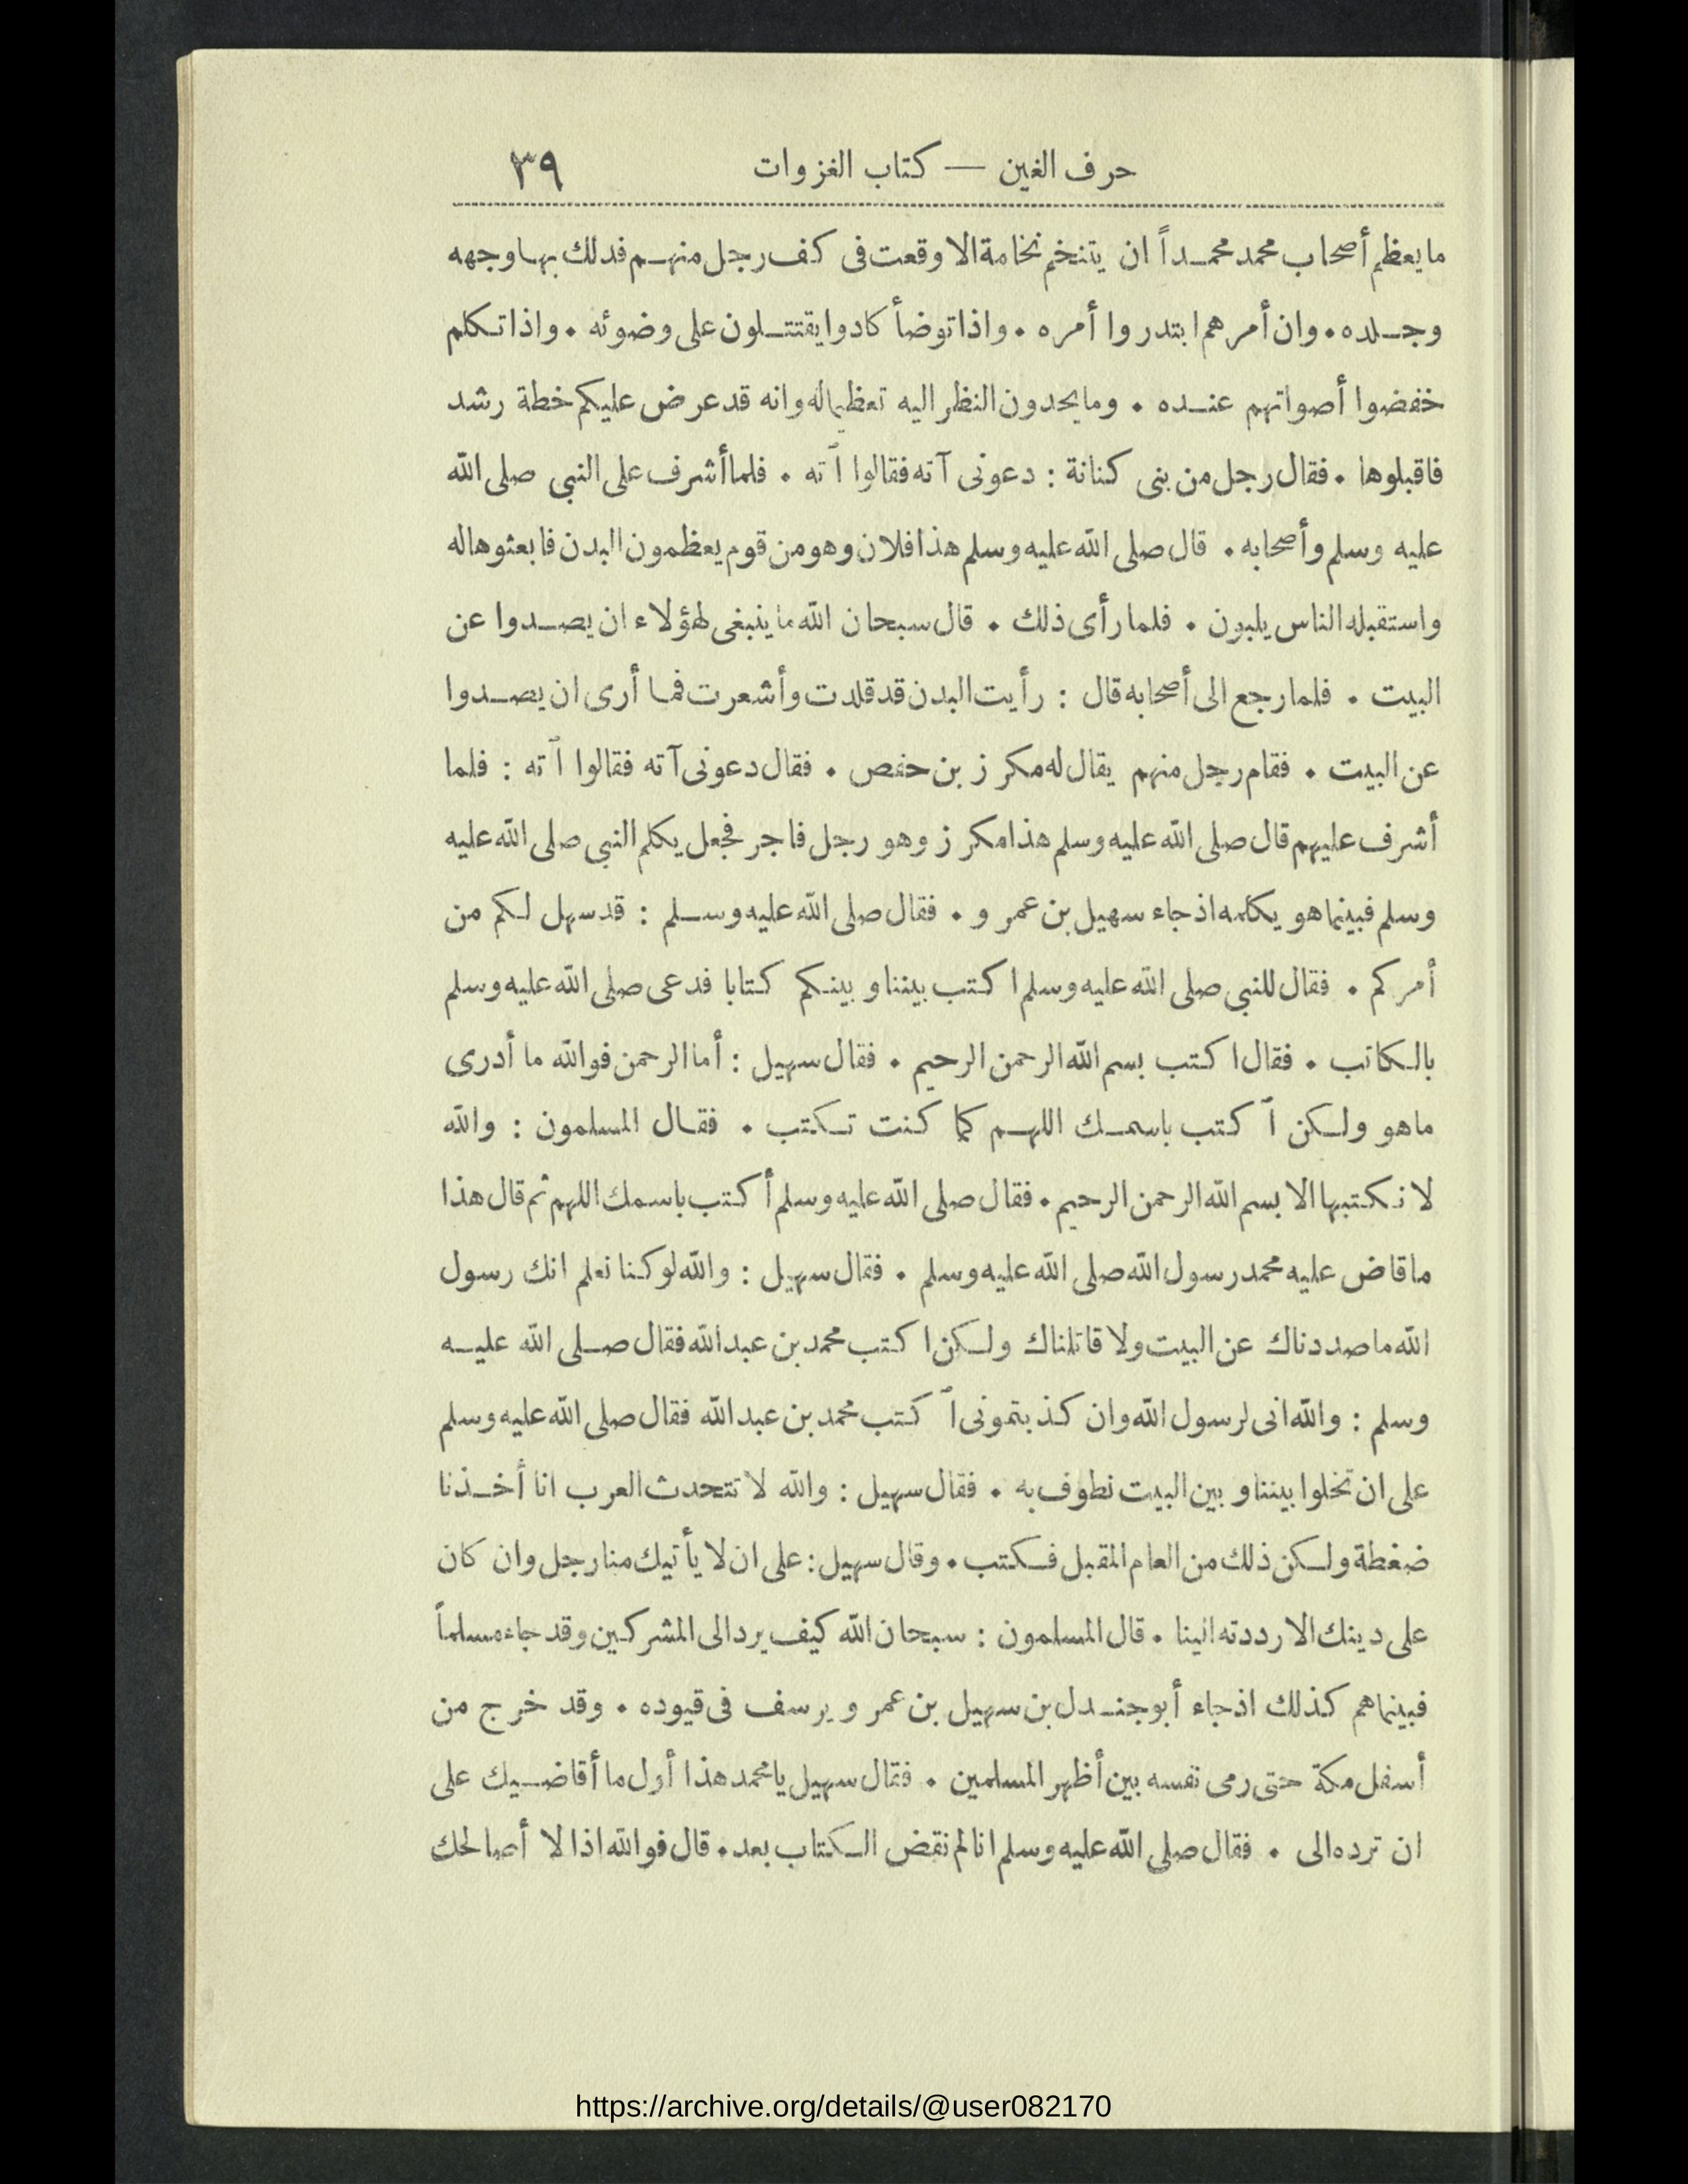 حرف الغين — كتاب الغزوات ٣٩
ما يعظم أصحاب محمد محمداً ان يتنخم نخامة الا وقعت فى كف رجل منهم فدلك بها وجهه
وجلده . وان أمرهم ابتدروا أمره . واذا توضأ كادوا يقتتلون على وضوئه . واذا تكلم
خفضوا أصواتهم عنده . وما يحدون النظر اليه تعظيما له وانه قد عرض عليكم خطة رشد
فاقبلوها . فقال رجل من بنى كنانة : دعونى آته فقالوا آته . فلما أشرف على النبي صلى الله
عليه وسلم وأصحابه . قال صلى الله عليه وسلم هذا فلان وهو من قوم يعظمون البدن فابعثوها له
واستقبله الناس يلبون . فلما رأى ذلك . قال سبحان الله ما ينبغى لهؤلاء ان يصدوا عن
البيت . فلما رجع الى أصحابه قال : رأيت البدن قد قلدت وأشعرت فما أرى ان يصدوا
عن البيت . فقام رجل منهم يقال له مكرز بن حفص . فقال دعونى آته فقالوا آته : فلما
أشرف عليهم قال صلى الله عليه وسلم هذا مكرز وهو رجل فاجر فجعل يكلم النبي صلى الله عليه
وسلم فبينما هو يكلمه اذ جاء سهيل بن عمرو . فقال صلى الله عليه وسلم : قد سهل لكم من
أمركم . فقال للنبي صلى الله عليه وسلم اكتب بيننا وبينكم كتابا فدعى صلى الله عليه وسلم
بالكاتب . فقال اكتب بسم الله الرحمن الرحيم . فقال سهيل : أما الرحمن فوالله ما أدرى
ما هو ولكن آكتب باسمك اللهم كما كنت تكتب . فقال المسلمون : والله
لا نكتبها الا بسم الله الرحمن الرحيم . فقال صلى الله عليه وسلم أكتب باسمك اللهم ثم قال هذا
ما قاض عليه محمد رسول الله صلى الله عليه وسلم . فقال سهيل : والله لو كنا نعلم انك رسول
الله ما صددناك عن البيت ولا قاتلناك ولكن اكتب محمد بن عبد الله فقال صلى الله عليه
وسلم : والله انى لرسول الله وان كذبتمونى آكتب محمد بن عبد الله فقال صلى الله عليه وسلم
على ان تخلوا بيننا وبين البيت نطوف به . فقال سهيل : والله لا تتحدث العرب انا أخذنا
ضغطة ولكن ذلك من العام المقبل فكتب . وقال سهيل : على ان لا يأتيك منا رجل وان كان
على دينك الا رددته الينا . قال المسلمون : سبحان الله كيف يرد الى المشركين وقد جاء مسلماً
فبينما هم كذلك اذ جاء أبو جندل بن سهيل بن عمرو يرسف فى قيوده . وقد خرج من
أسفل مكة حتى رمى نفسه بين أظهر المسلمين . فقال سهيل يا محمد هذا أول ما أقاضيك على
ان ترده الى . فقال صلى الله عليه وسلم انا لم نقض الكتاب بعد . قال فوالله اذا لا أصالحك
https://archive.org/details/@user082170